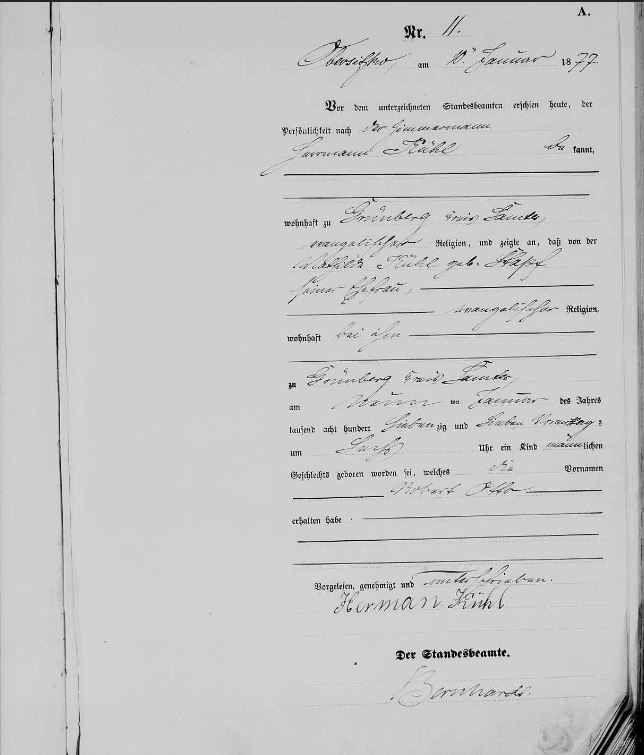 A.
Nr. 11.
Obersitzko, am 10. Januar 1877
Vor dem unterzeichneten Standesbeamten erschien heute, der
Persönlichkeit nach der Zimmermann
Herrmann Kühl bekannt,
wohnhaft zu Grünberg Kreis Samter,
evangelischer Religion, und zeigte an, daß von der
Mathilde Kühl geb.
seiner Ehefrau,
evangelischer Religion,
wohnhaft bei ihm
zu Grünberg Kreis Samter,
am neunten Januar des Jahres
tausend acht hundert siebenzig und sieben Vormittags
um sechs Uhr ein Kind männlichen
Geschlechts geboren worden sei, welches die Vornamen
Robert Otto
erhalten habe
Vorgelesen, genehmigt und unterschrieben.
Herman Kühl
Der Standesbeamte.
Bernhardt.